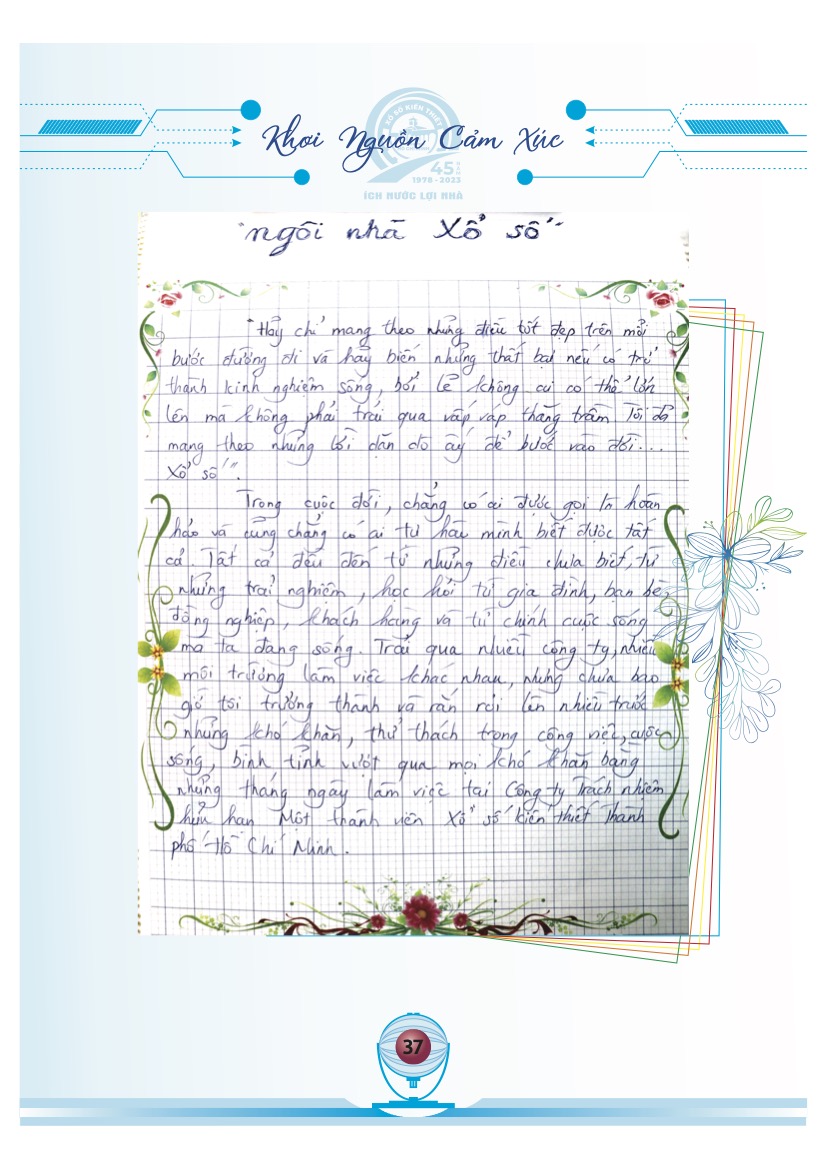 XỔ SỐ KIẾN THIẾT
Khơi Nguồn Cảm Xúc
45 NĂM
1978 - 2023
ÍCH NƯỚC LỢI NHÀ
"ngôi nhà Xổ số"
"Hãy chỉ mang theo những điều tốt đẹp trên mỗi
bước đường đi và hãy biến những thất bại nếu có trở
thành kinh nghiệm sống, bởi lẽ không ai có thể lớn
lên mà không phải trải qua vấp váp thăng trầm. Tôi đã
mang theo những lời dặn dò ấy để bước vào đời...
Xổ số".
Trong cuộc đời, chẳng có ai được gọi là hoàn
hảo và cũng chẳng có ai tự hào mình biết được tất
cả. Tất cả đều đến từ những điều chưa biết, từ
những trải nghiệm, học hỏi từ gia đình, bạn bè,
đồng nghiệp, khách hàng và từ chính cuộc sống
mà ta đang sống. Trải qua nhiều công ty, nhiều
môi trường làm việc khác nhau, nhưng chưa bao
giờ tôi trưởng thành và rắn rỏi lên nhiều trước
những khó khăn, thử thách trong công việc, cuộc
sống, bình tĩnh vượt qua mọi khó khăn bằng
những tháng ngày làm việc tại Công ty Trách nhiệm
hữu hạn Một thành viên Xổ số kiến thiết Thành
phố Hồ Chí Minh.
37